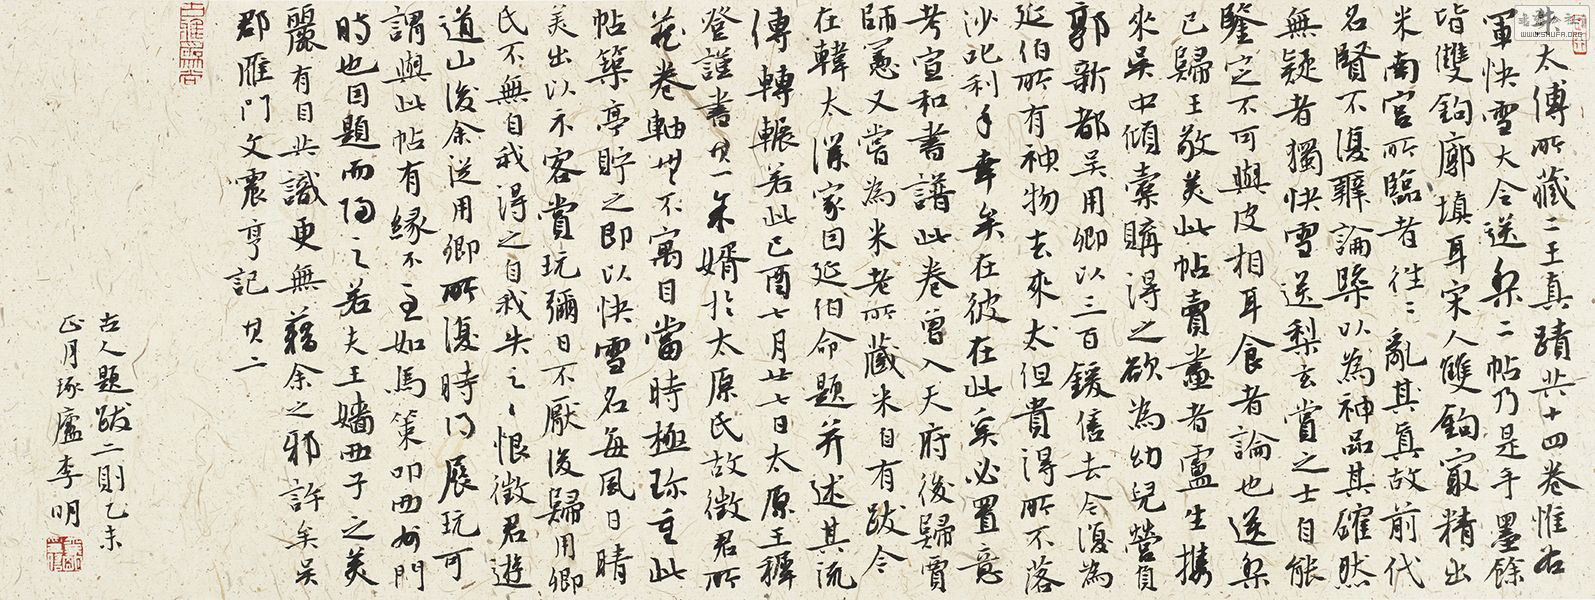 朱太傅所藏二王真蹟共十四卷惟右
軍快雪大令送梨二帖乃是手墨餘
皆雙鉤廓填耳宋人雙鉤最精出
米南宮所臨者往〻亂其真故前代
名賢不復辭論槩以為神品其確然
無疑者獨快雪送梨玄賞之士自能
鑒定不可與皮相耳食者論也送梨
已歸王敬美此帖賣畫者盧生携
來吳中傾橐購得之欲為幼兒營負
郭新都吳用卿以三百鍰售去今復為
延伯所有神物去來太但貴得所不落
沙叱利手幸矣在彼在此奚必置意
考宣和書譜此卷曾入天府後歸賈
師憲又嘗為米老所藏米自有跋今
在韓太僕家因延伯命題并述其流
傳轉輾若此己酉七月廿七日太原王穉
登謹書 其一 余婿於太原氏故徵君所
卷軸無不寓目當時極珍重此
帖築亭貯之即以快雪名每風日晴
美出以示客賞玩彌日不厭後歸用卿
氏不無自我得之自我失之〻恨徵君遊
道山後余從用卿所復時得展玩可
謂與此帖有緣不至如馬策叩西州門
時也因題而歸之若夫王嬙西子之美
麗有目共識更無藉余之邪許矣吳
郡雁門文震亨記 其二
古人題跋二則乙未
正月琢廬李明
北京 書法
WWW.SHUFA.ORG